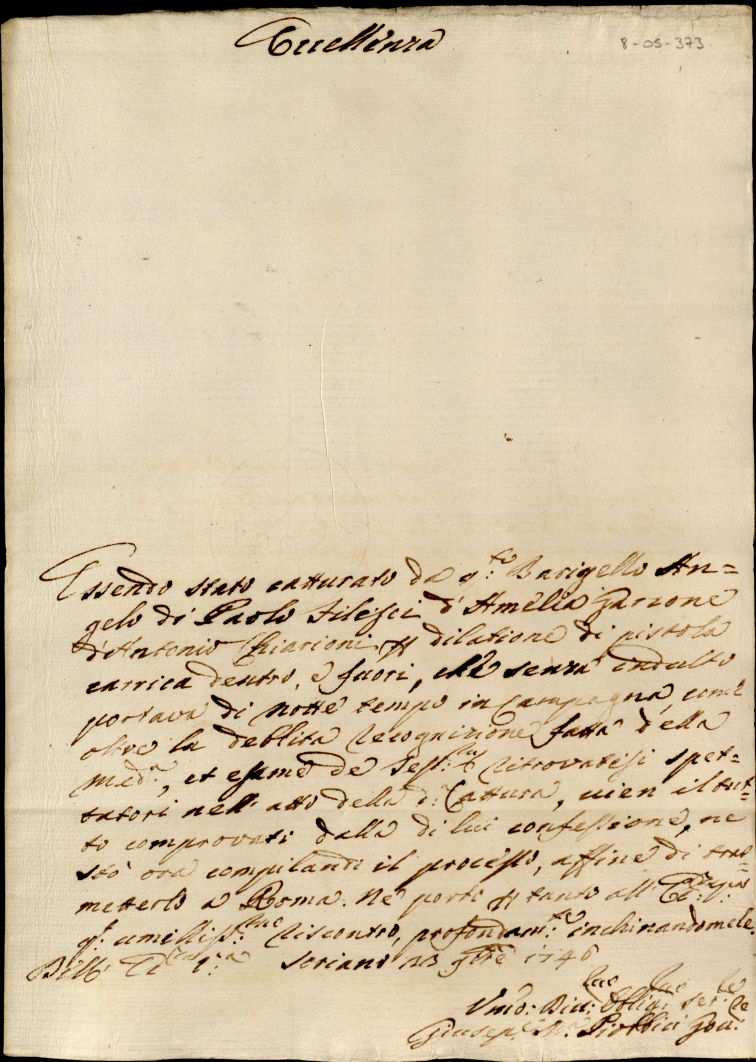 Eccellenza
8-05-373.
Essendo stato catturato da q.to Barigello An=
gelo di Paolo Filesci d'Amelia Garzone
d'Antonio Chiarioni dilatione di pistola
carrica dentro, e fuori, che senza indulto
portava di notte tempo in Campagna, com'è
oltre la debbita recognizione fatta della
med.a, et esame de Test. ritrovatisi spet=
tatori nell'atto della d.a Cattura, vien il tut=
to comprovati dalla di lui confessione, ne
stò ora compilandi il processo, affine di tras=
metterlo a Roma. Ne porti tanto all'
q.l umiliss. riscontro, profondam.te inchinandomele.
Soriano 23 9bre 1746
Umo: Div: Obblig. Ser.
Giusep. Gov: